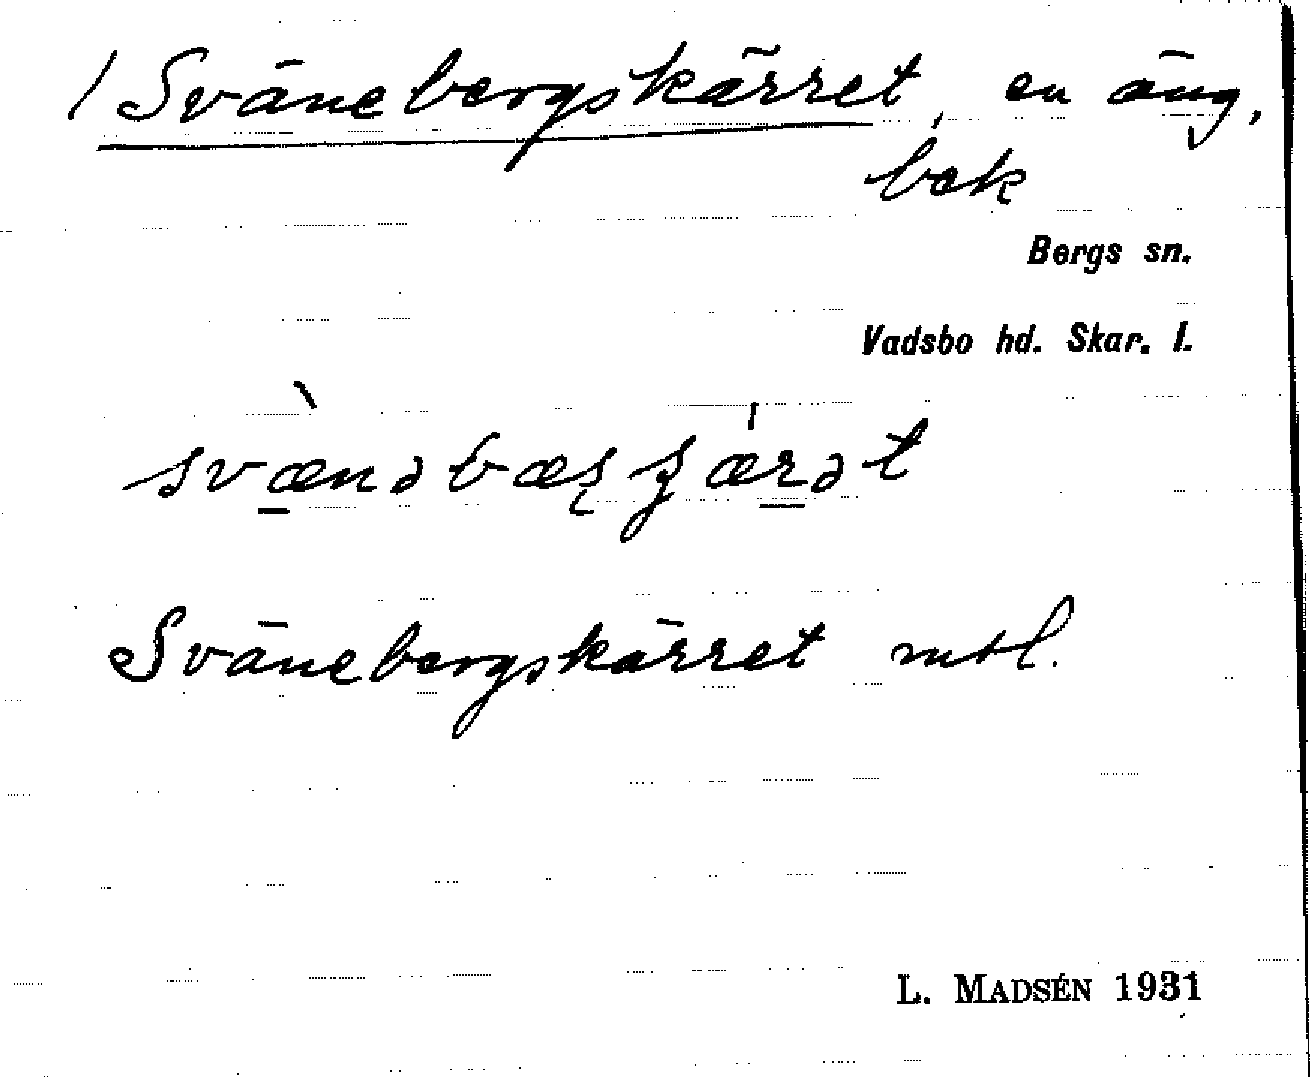 / Svänebergskärret, en äng,
bek
Bergs sn.
Vadsbo hd. Skar. l.
Svänebergskärret mtl.
L. MADSÉN 1931